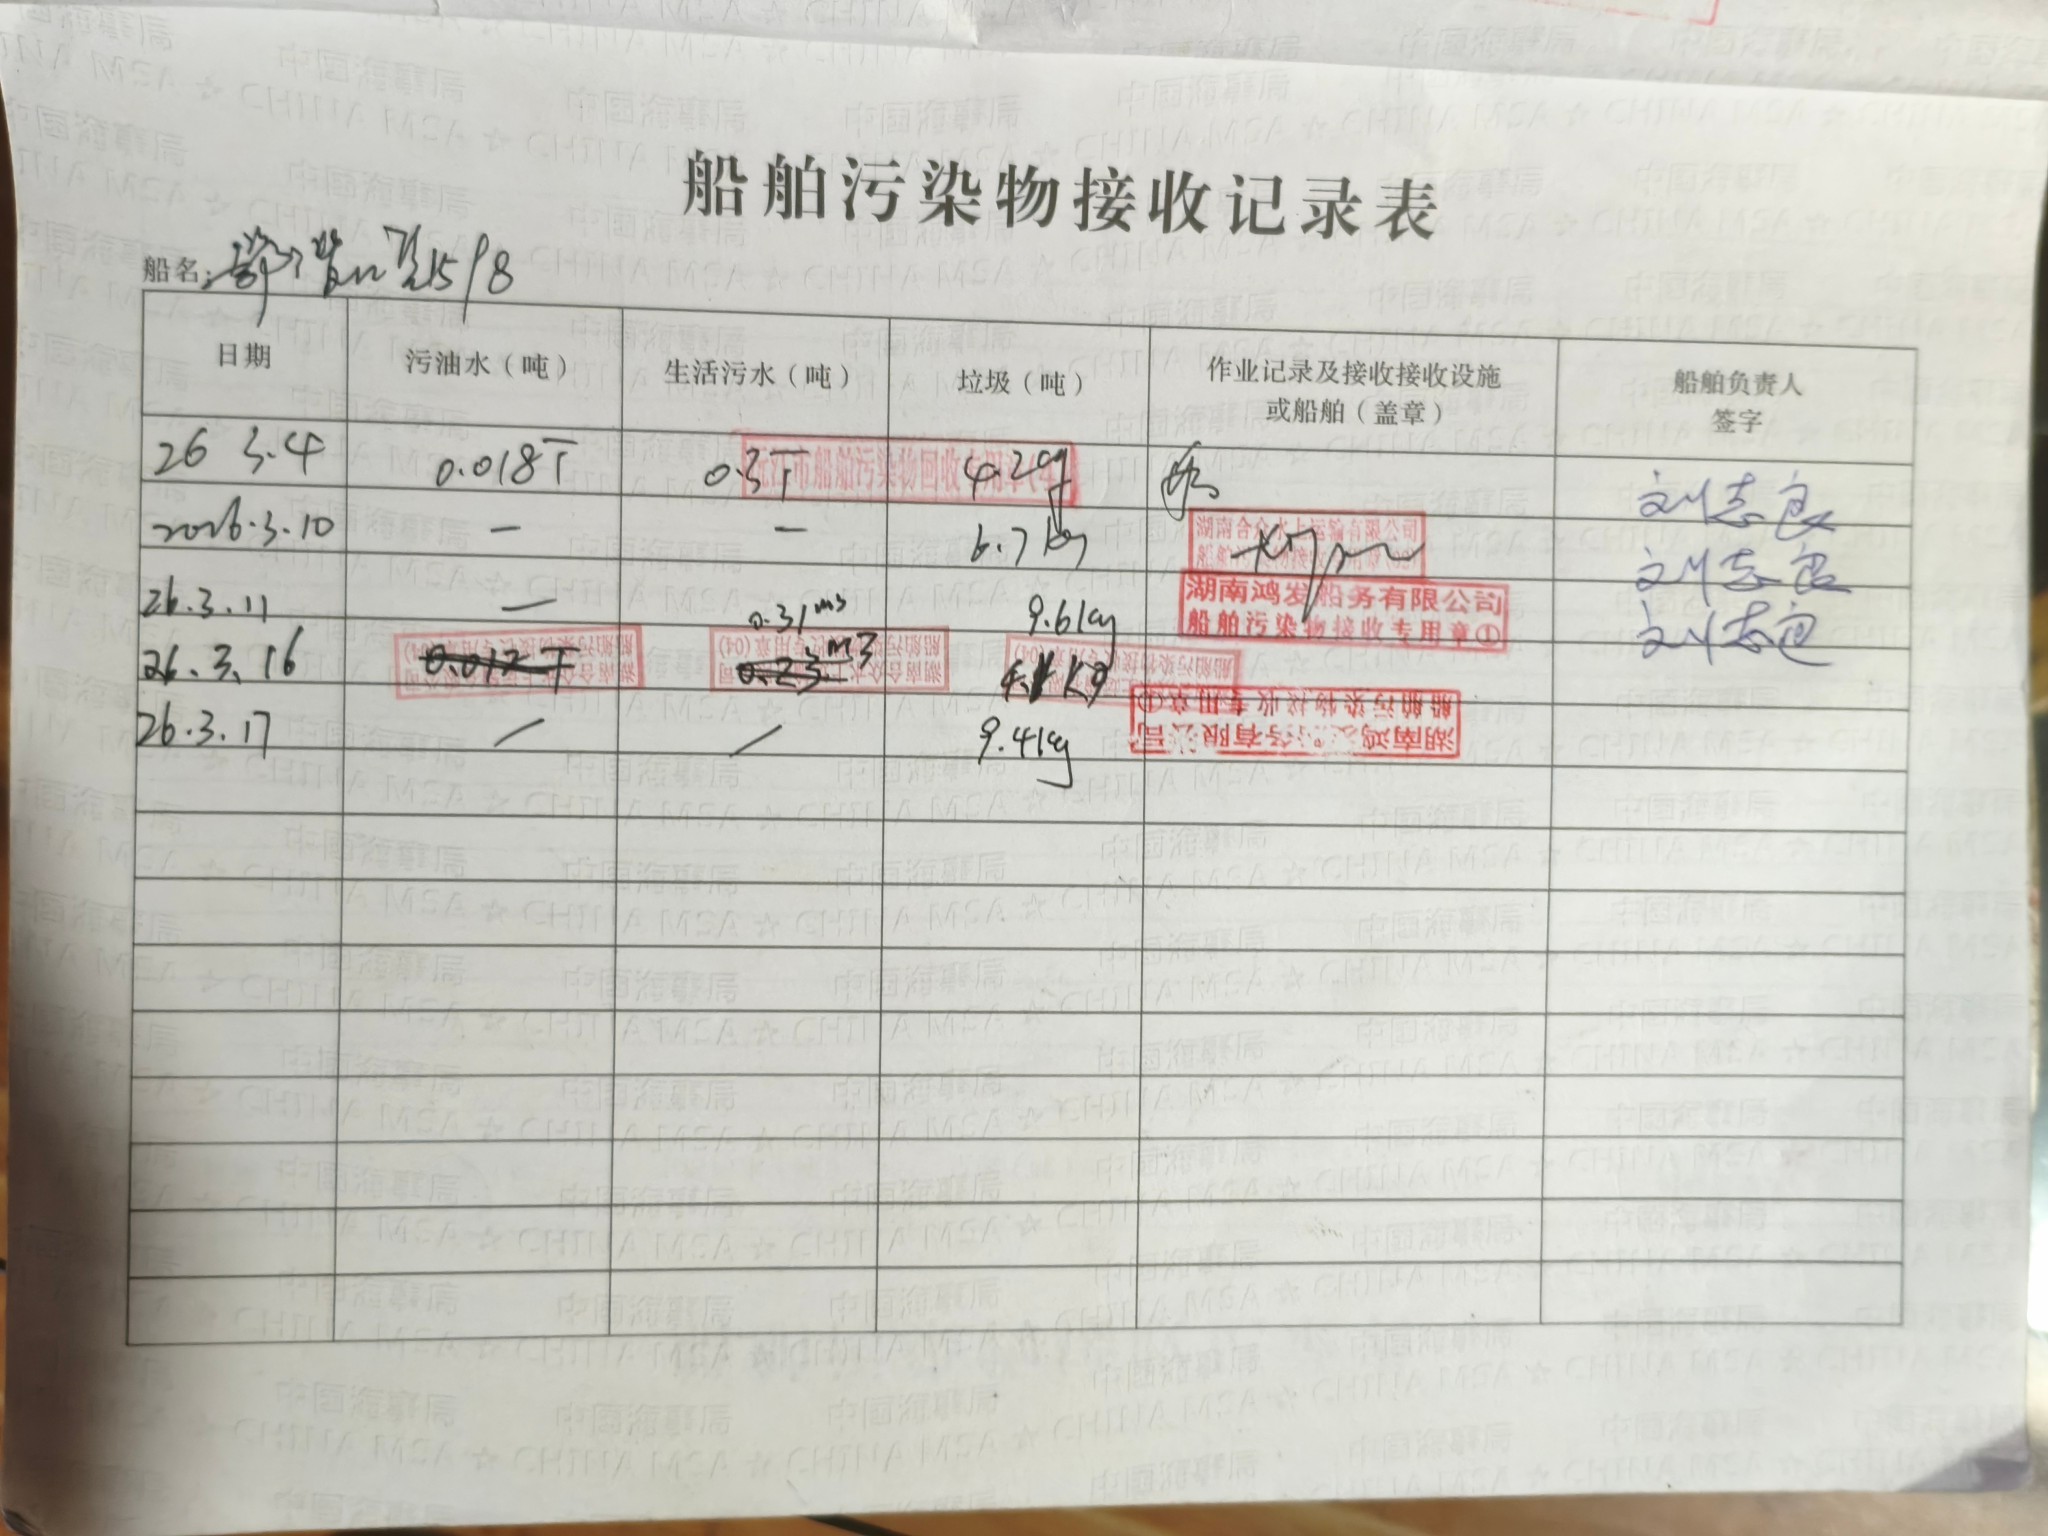 船舶污染物接收记录表
船名: 15/8
日期 污油水（吨） 生活污水（吨） 垃圾（吨） 作业记录及接收接收设施或船舶（盖章） 船舶负责人签字
26 3.4 0.018T 0.3T 4.2kg 刘志良
沅江市船舶污染物回收专用章
2026.3.10 — — 6.7kg 刘志良
湖南合众水上运输有限公司
26.3.11 — 0.31m3 9.6kg 刘志良
湖南鸿发船务有限公司
船舶污染物接收专用章①
26.3.16 0.012T 0.23m3 KG
26.3.17 / / 9.4kg
湖南鸿发船务有限公司
船舶污染物接收专用章①
中国海事局
CHINA MSA ☆ CHINA MSA